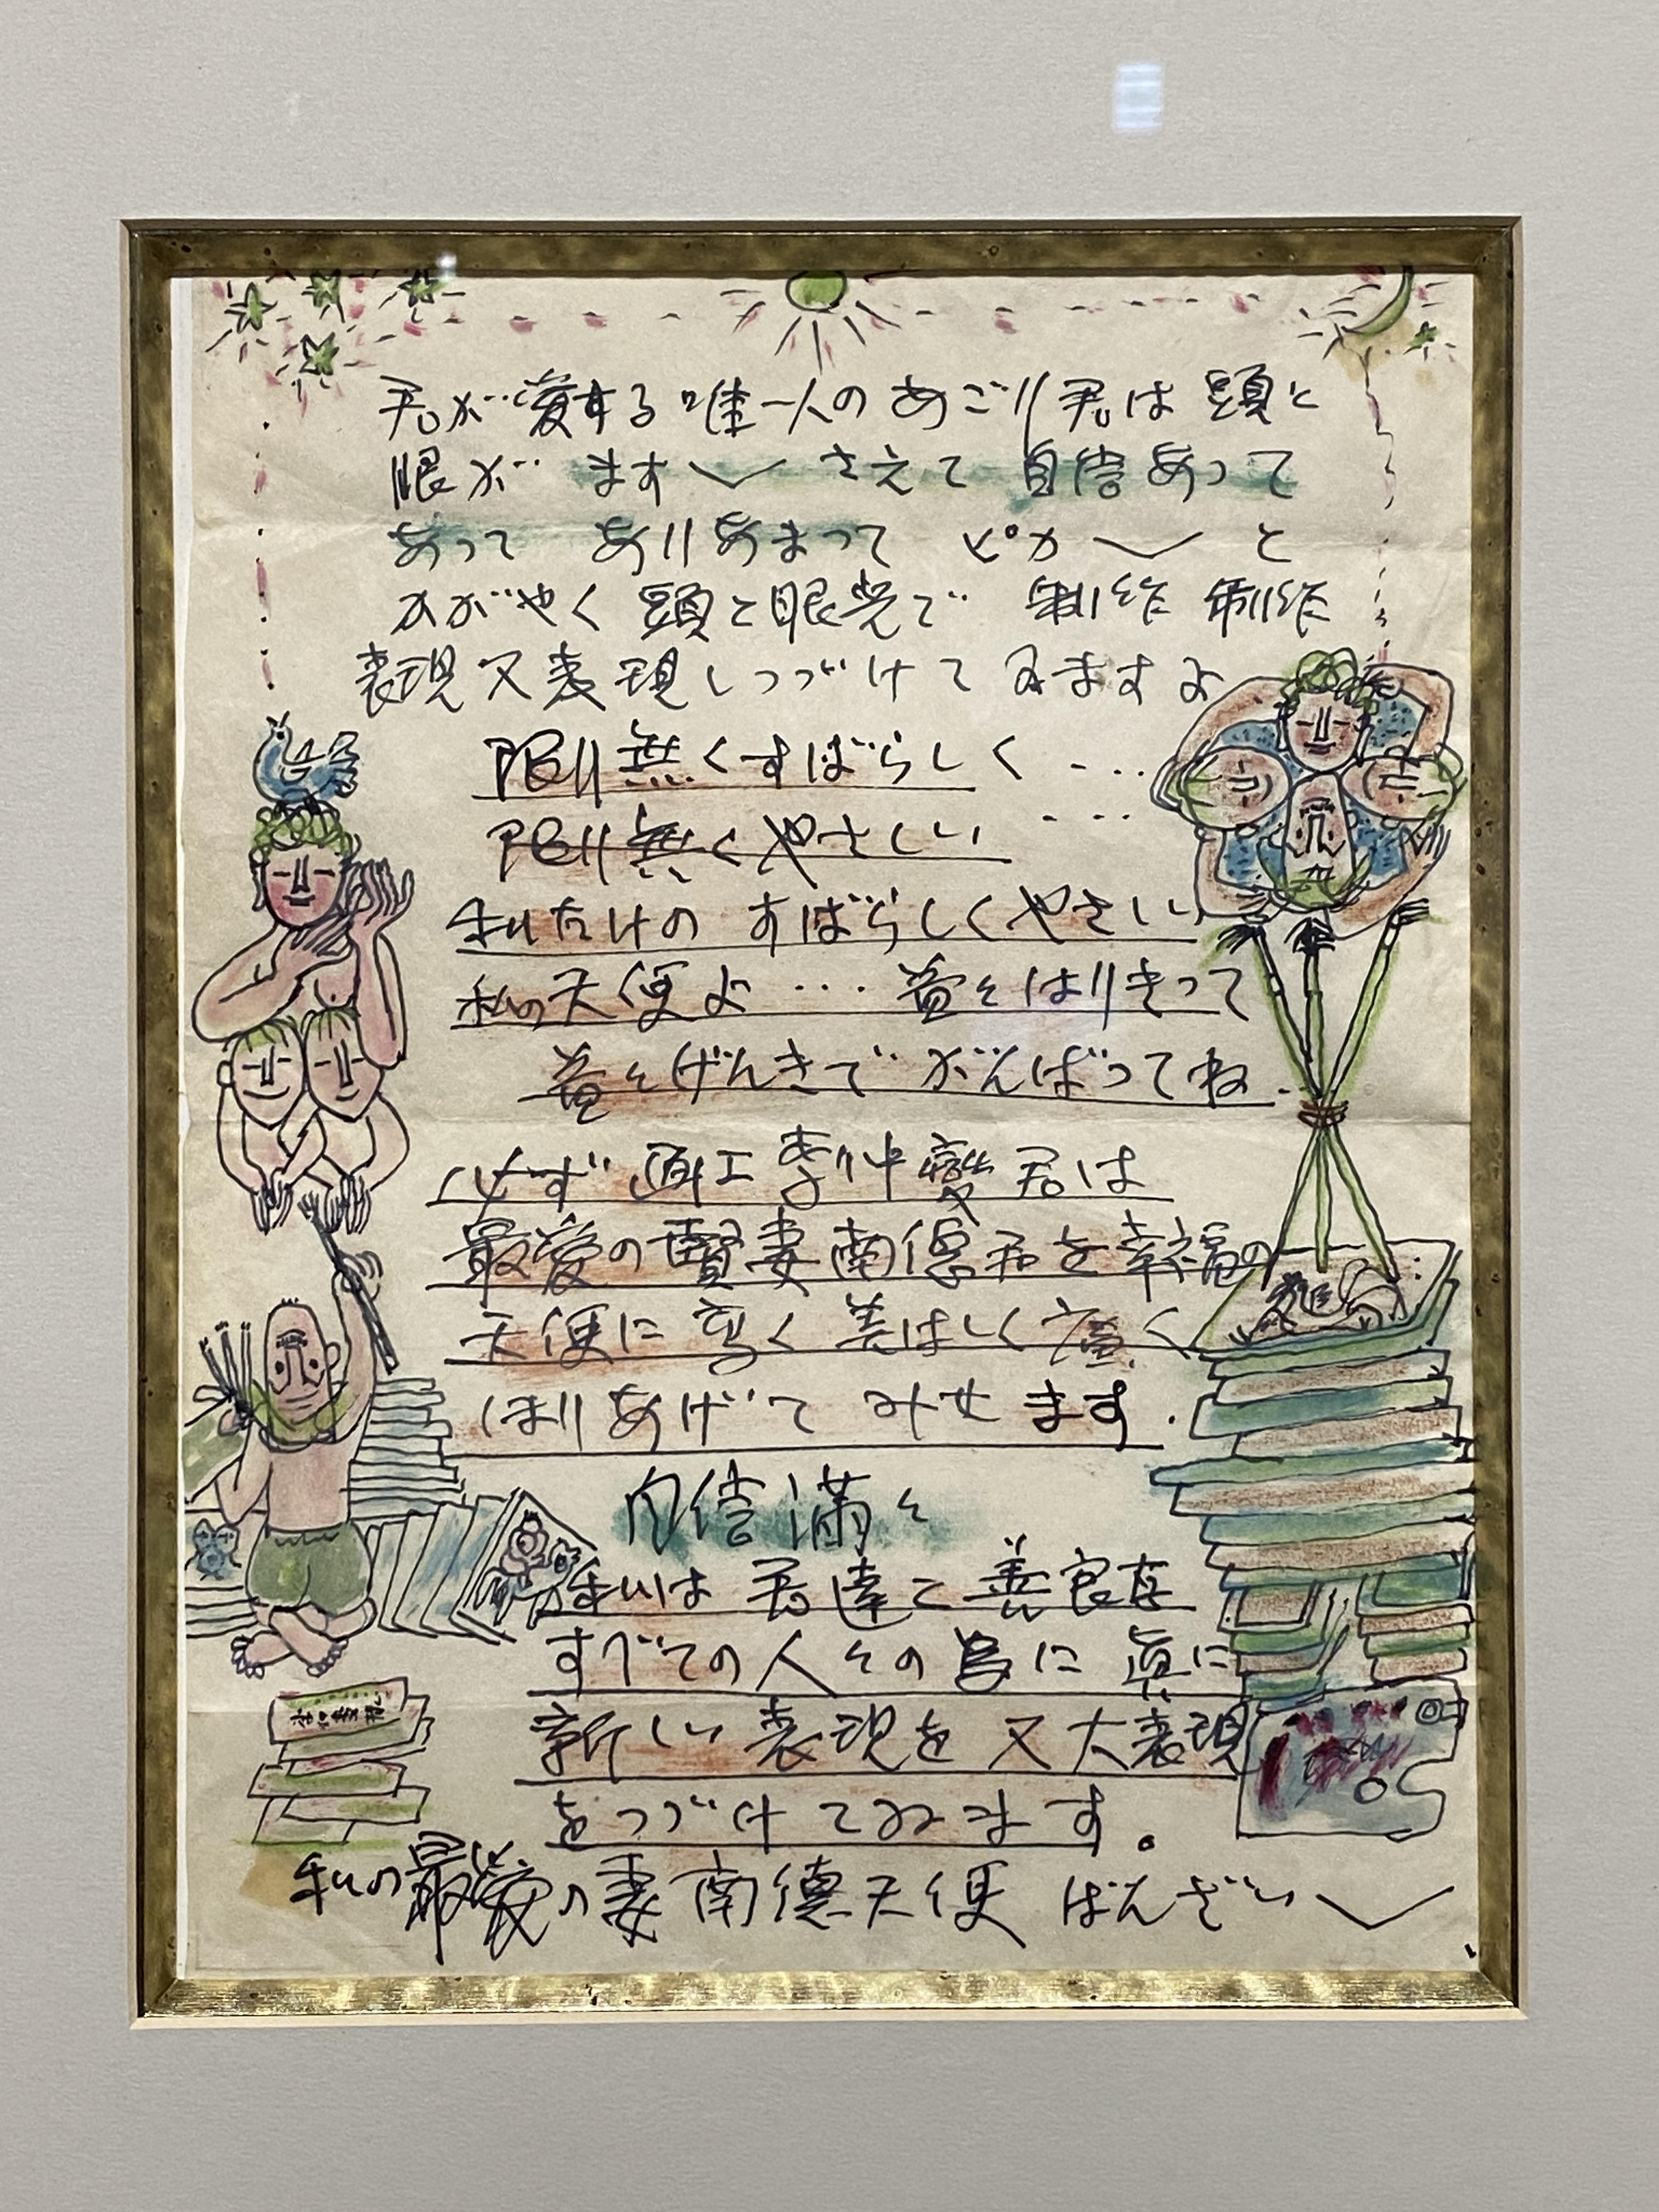 君が愛する唯一人のあごリ君は頭と
眼が ます〳〵 さえて 自信あって
あって ありあまって ピカ〳〵 と
かがやく 頭と眼光で 制作 制作
表現又表現しつづけてゐますよ
限り無くすばらしく‥‥
限り無くやさしい ‥‥
私だけの すばらしくやさしい
私の天使よ‥‥益々はりきって
益々げんきで がんばってね.
必ず 画工 李仲燮君は
最愛の賢妻南德君を幸福の
天使に 高く 美はしく 廣く
ほりあげて みせます.
自信満々
私は 君達と 善良な
すべての人々の為に 真に
新しい 表現を 又 大表現
をつづけてゐます。
私の最愛の妻南德天使 ばんざい〳〵